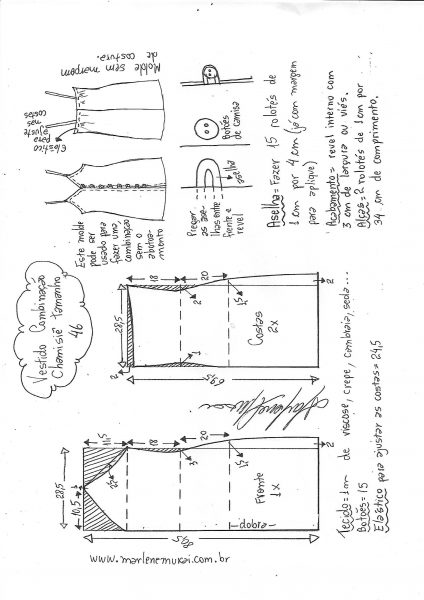 Vestido Combinação
Chamisiê Tamanho
46
Este molde
pode ser
usado para
fazer uma
combinação
sem o
abotoamento
Elástico
para
ajuste
nas
costas
Molde sem margem
de costura.
Pregar
as asel-
lhas entre
frente e
revel
aselha
Botões
de camisa
Aselha = Fazer 15 rolotês de
1 cm por 4 cm (já com margem
para aplique)
Acabamento = revel interno com
3 cm de largura ou viés.
Alças = 2 rolotês de 1 cm por
34 cm de comprimento.
28,5
2
18
20
2
1,5
1
Costas
2x
2
28,5
10,5
1
15
18
20
3
1,5
Frente
1x
dobra
2
www.marlenemukai.com.br
Tecido = 1 m de viscose, crepe, cambraia, seda...
Botões = 15
Elástico para ajustar as costas = 24,5